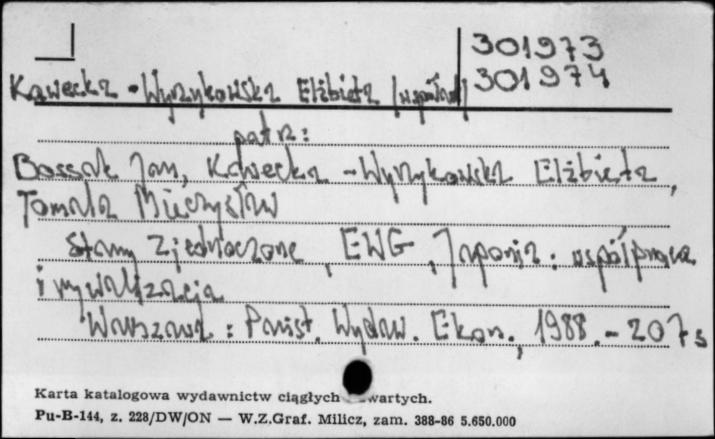 301973
301974
Kawecka-Wyrzykowska Elżbieta (współaut)
patrz:
Bossak Jan, Kawecka-Wyrzykowska Elżbieta,
Tomala Mieczysław
Stany Zjednoczone, EWG, Japonia: współpraca
i rywalizacja
Warszawa: Państ. Wydaw. Ekon., 1988. - 207 s
Karta katalogowa wydawnictw ciągłych wartych.
Pu-B-144, z. 228/DW/ON — W.Z.Graf. Milicz, zam. 388-86 5.650.000